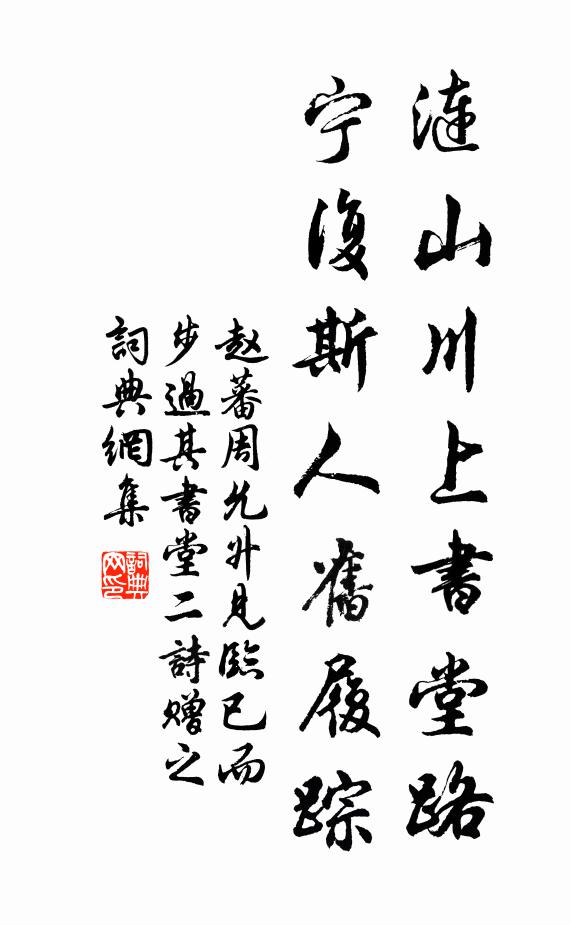 涟山川上書堂路
宁復斯人舊履踪
赵蕃周允升見臨已而
步過其書堂二詩赠之
詞典網集
詞典網印